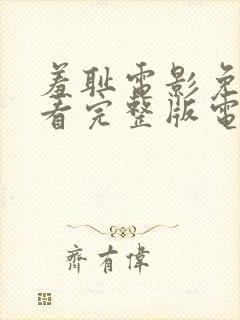 羞耻電影免
看完整版電
齊有偉